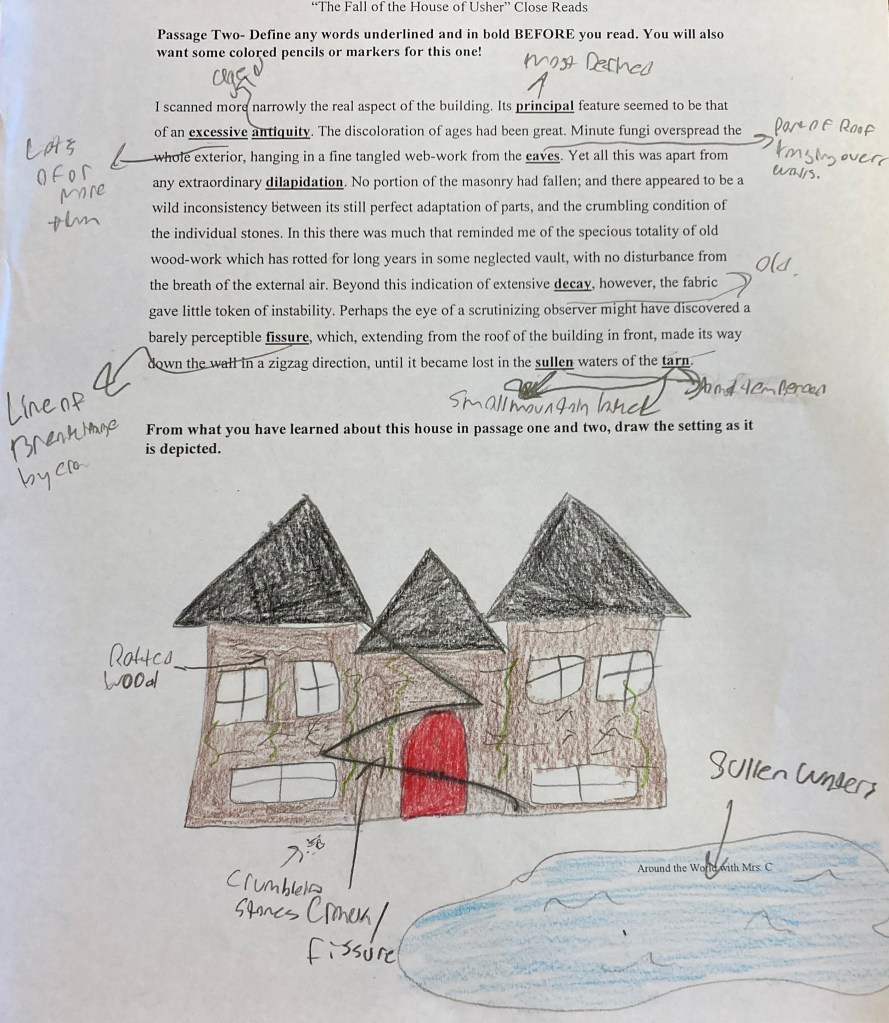 "The Fall of the House of Usher" Close Reads
Passage Two- Define any words underlined and in bold BEFORE you read. You will also
want some colored pencils or markers for this one!
most
I scanned more narrowly the real aspect of the building. Its principal feature seemed to be that
of an excessive antiquity. The discoloration of ages had been great. Minute fungi overspread the
whole exterior, hanging in a fine tangled web-work from the eaves. Yet all this was apart from
any extraordinary dilapidation. No portion of the masonry had fallen; and there appeared to be a
wild inconsistency between its still perfect adaptation of parts, and the crumbling condition of
the individual stones. In this there was much that reminded me of the specious totality of old
wood-work which has rotted for long years in some neglected vault, with no disturbance from
the breath of the external air. Beyond this indication of extensive decay, however, the fabric
gave little token of instability. Perhaps the eye of a scrutinizing observer might have discovered a
barely perceptible fissure, which, extending from the roof of the building in front, made its way
down the wall in a zigzag direction, until it became lost in the sullen waters of the tarn.
Part of Roof
over
walls.
Lots
of or
more
Old.
Line of
by
Small mountain
From what you have learned about this house in passage one and two, draw the setting as it
is depicted.
Rotted
wood
Sullen
Around the World with Mrs. C
Stones
fissure